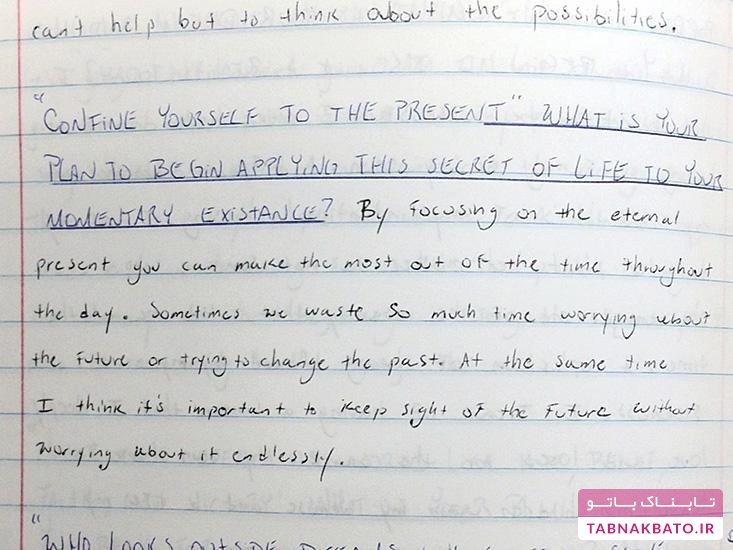 can't help but to think about the possibilities.
"CONFINE YOURSELF TO THE PRESENT" WHAT iS YOUR
PLAN TO BEGIN APPLYING THIS SECRET OF LiFE TO YOUR
MOMENTARY EXISTANCE? By focusing on the eternal
present you can make the most out of the time throughout
the day. Sometimes we waste so much time worrying about
the future or trying to change the past. At the same time
I think it's important to keep sight of the future without
worrying about it endlessly.
"WHO LOOKS OUTSIDE
تابناک باتو
TABNAKBATO.IR